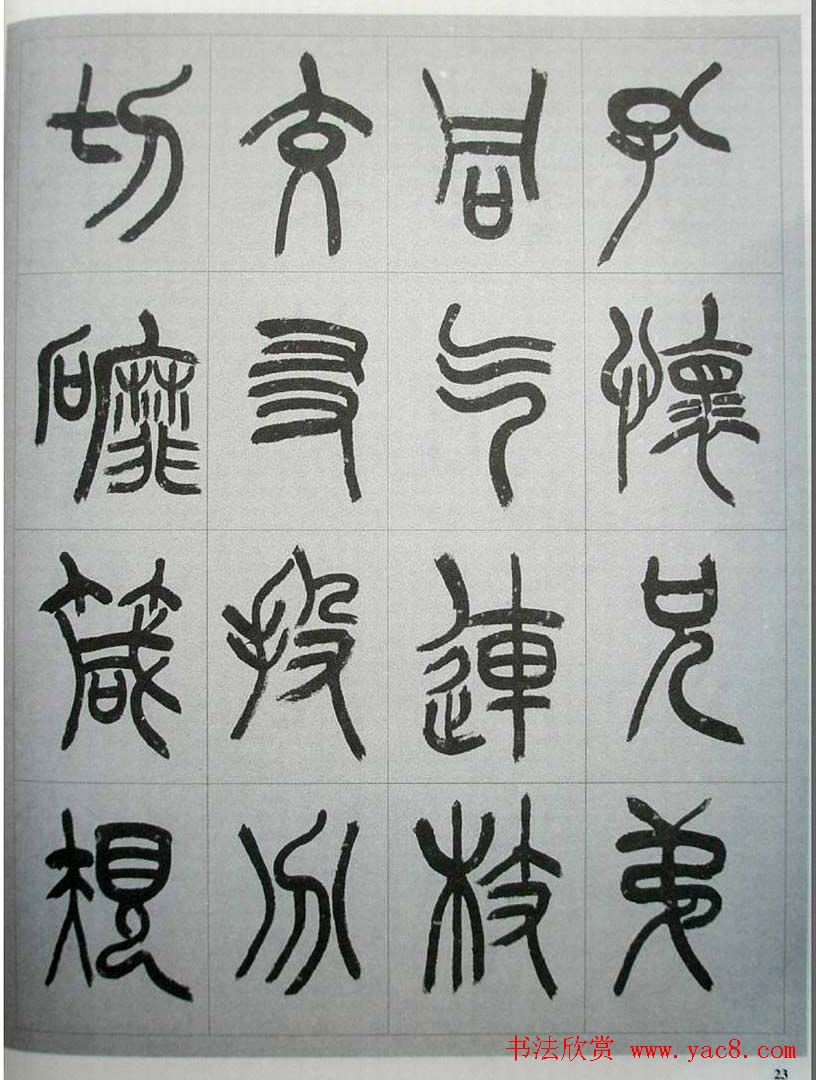 孔懷兄弟
同气連枝
交友投分
切磨箴規
书法欣赏 www.yac8.com
23